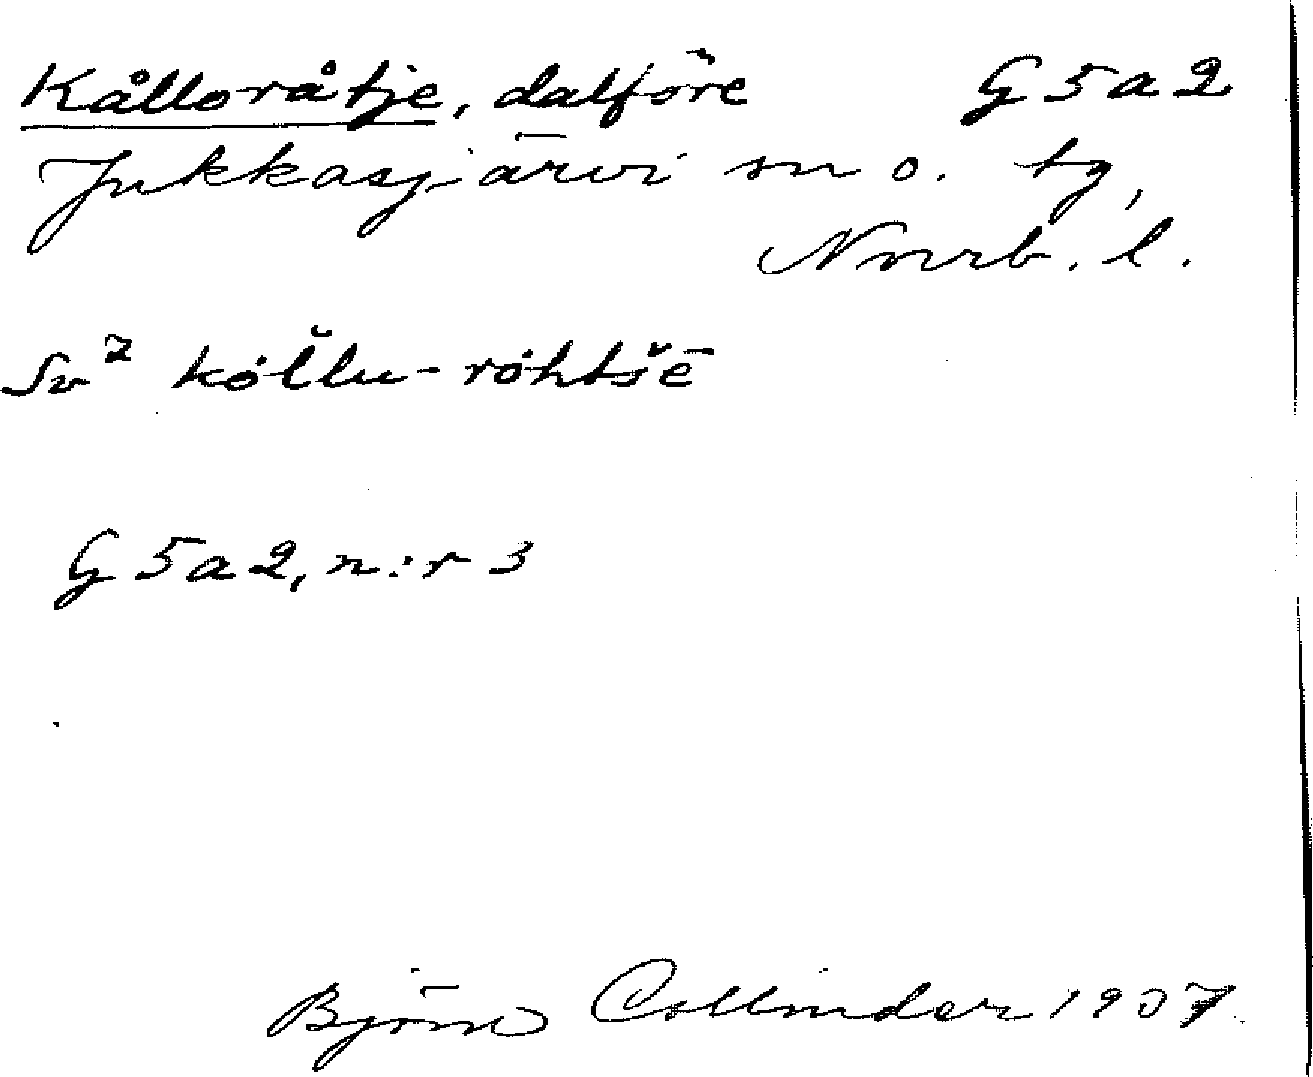 Kålloråtje, dalföre G5a2
Jukkasjärvi sn o. tg,
Norrb. l.
Sv² kȯl̆lu-rȯhtšē
G5a2, n:r 3
Björn Collinder 1937